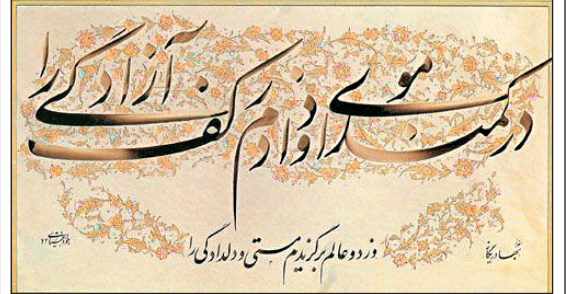 در کمند موی او دادم ز کف آزادگی را
وز دو عالم برگزیدم مستی و دلدادگی را
بهادر یگانه